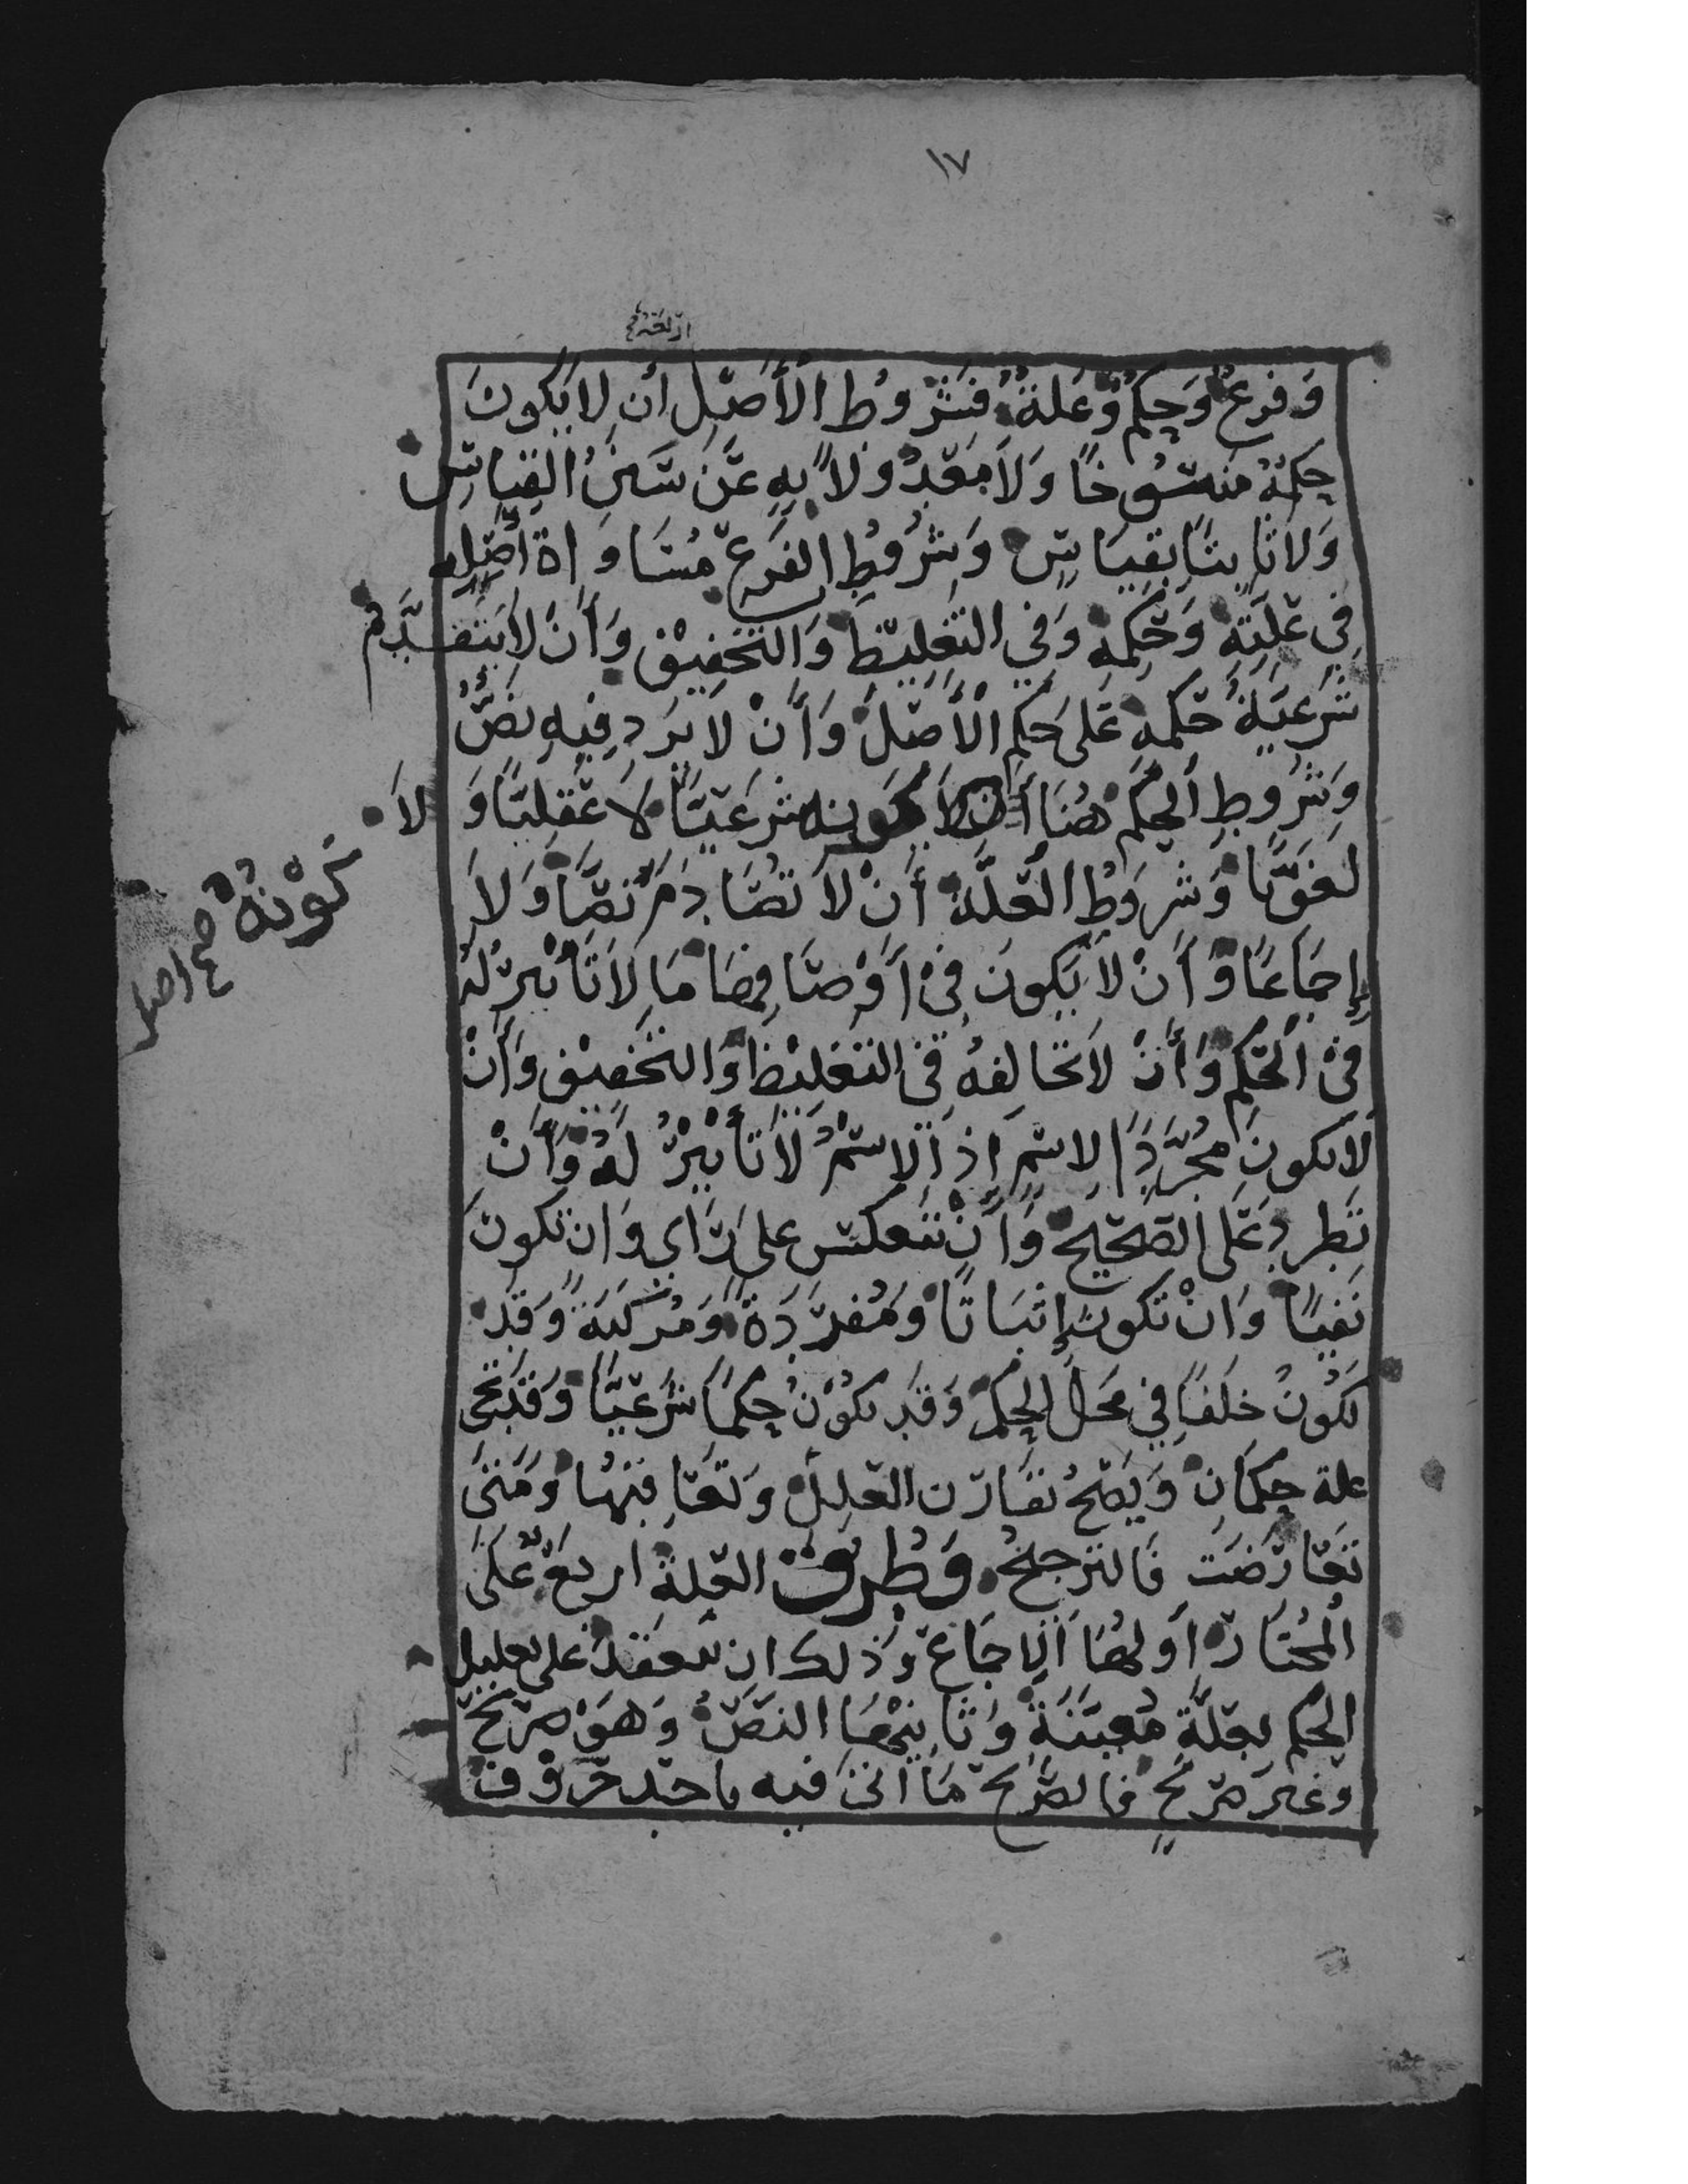 ١٧
أربعة
وَفرعٌ وَحكمٌ وَعلةٌ فشروط الأصل أن لا يكونَ
حكمهُ منسُوخًا وَلا معدُولاً بهِ عَن سَنن القياسِ
وَلا ثابتًا بقياسٍ وَشروط الفرع مُسَاوَاة أصلِه
فِي علتهِ وَحُكمِه وَفي التغليظ وَالتخفيف وَأنْ لا يتقدَّم
شَرعيةُ حُكمه عَلى حكم الأصل وَأنْ لا يَرد فيهِ نصٌ
وَشروط الحكم هُنَا كونه شرعيًا لا عقليًا وَلا
كَوْنهُ صح اصل
لغويًا وَشروط العلَّة أنْ لا تُصَادم نصًا وَلا
إجمَاعًا وَأنْ لا يَكونَ فيْ أوْصَافِهَا مَا لا تَأثيرَ لهُ
فيْ الحُكم وَأنْ لا تخالفهُ في التغليظ وَالتخفيف وَأنْ
لا تكون مجُرَّدَ الاسم إذ الاسْمُ لا تأثيْرَ لهُ وَأنْ
تَطرد عَلى الصّحيح وَأنْ تنعكس على رَأي وَان تكونَ
نَفيًا وَانْ تكون إثباتًا وَمُفردَةً وَمُركبَةً وَقد
تكُونُ خلفًا في محَل الحكم وَقد تكُوْنُ حكمًا شَرعيًا وَقد تجئ
علة حكمَان وَيَصحُ تقارن العلل وَتعَاقبُهَا وَمَتىَ
تعَارَضت فَالترجيحُ وَطُرقُ العلةِ اربعٌ عَلىَ
المُختَار أولهَا الإجمَاع وَذلك ان ينعقد على تعليل
الحكم بعلةٍ مُعينَةٍ وَثانيْهَا النصُّ وَهوَ صريحٌ
وَغير صريحٍ فالصريحُ مَا اتى فيه باحد حرُوف